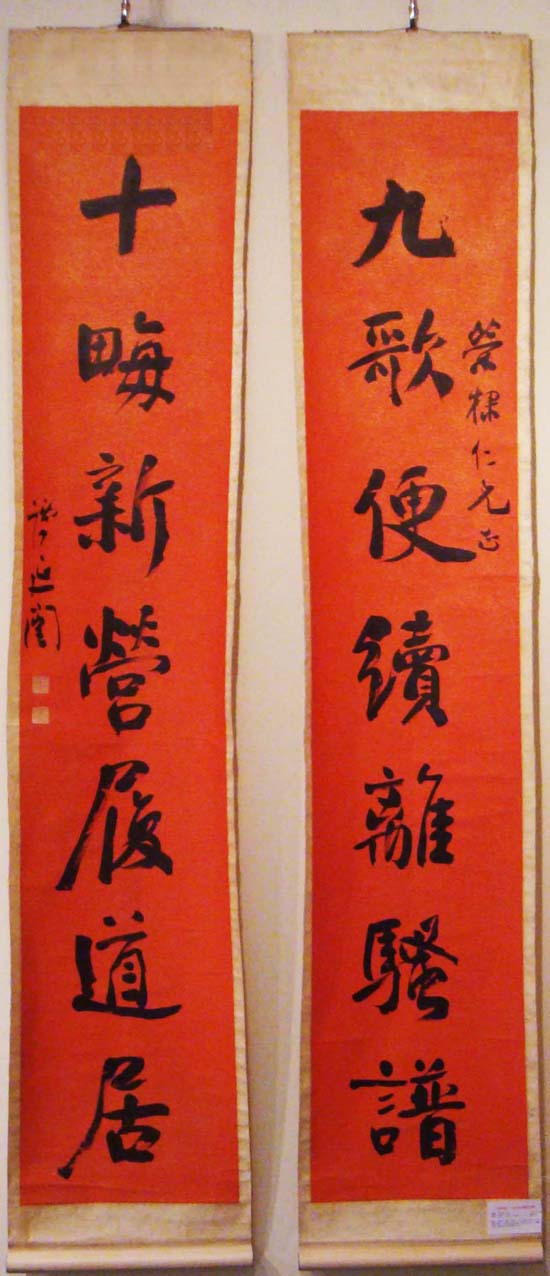 九歌便續離騷譜
榮楳仁兄正
十畮新營履道居
譚延闓